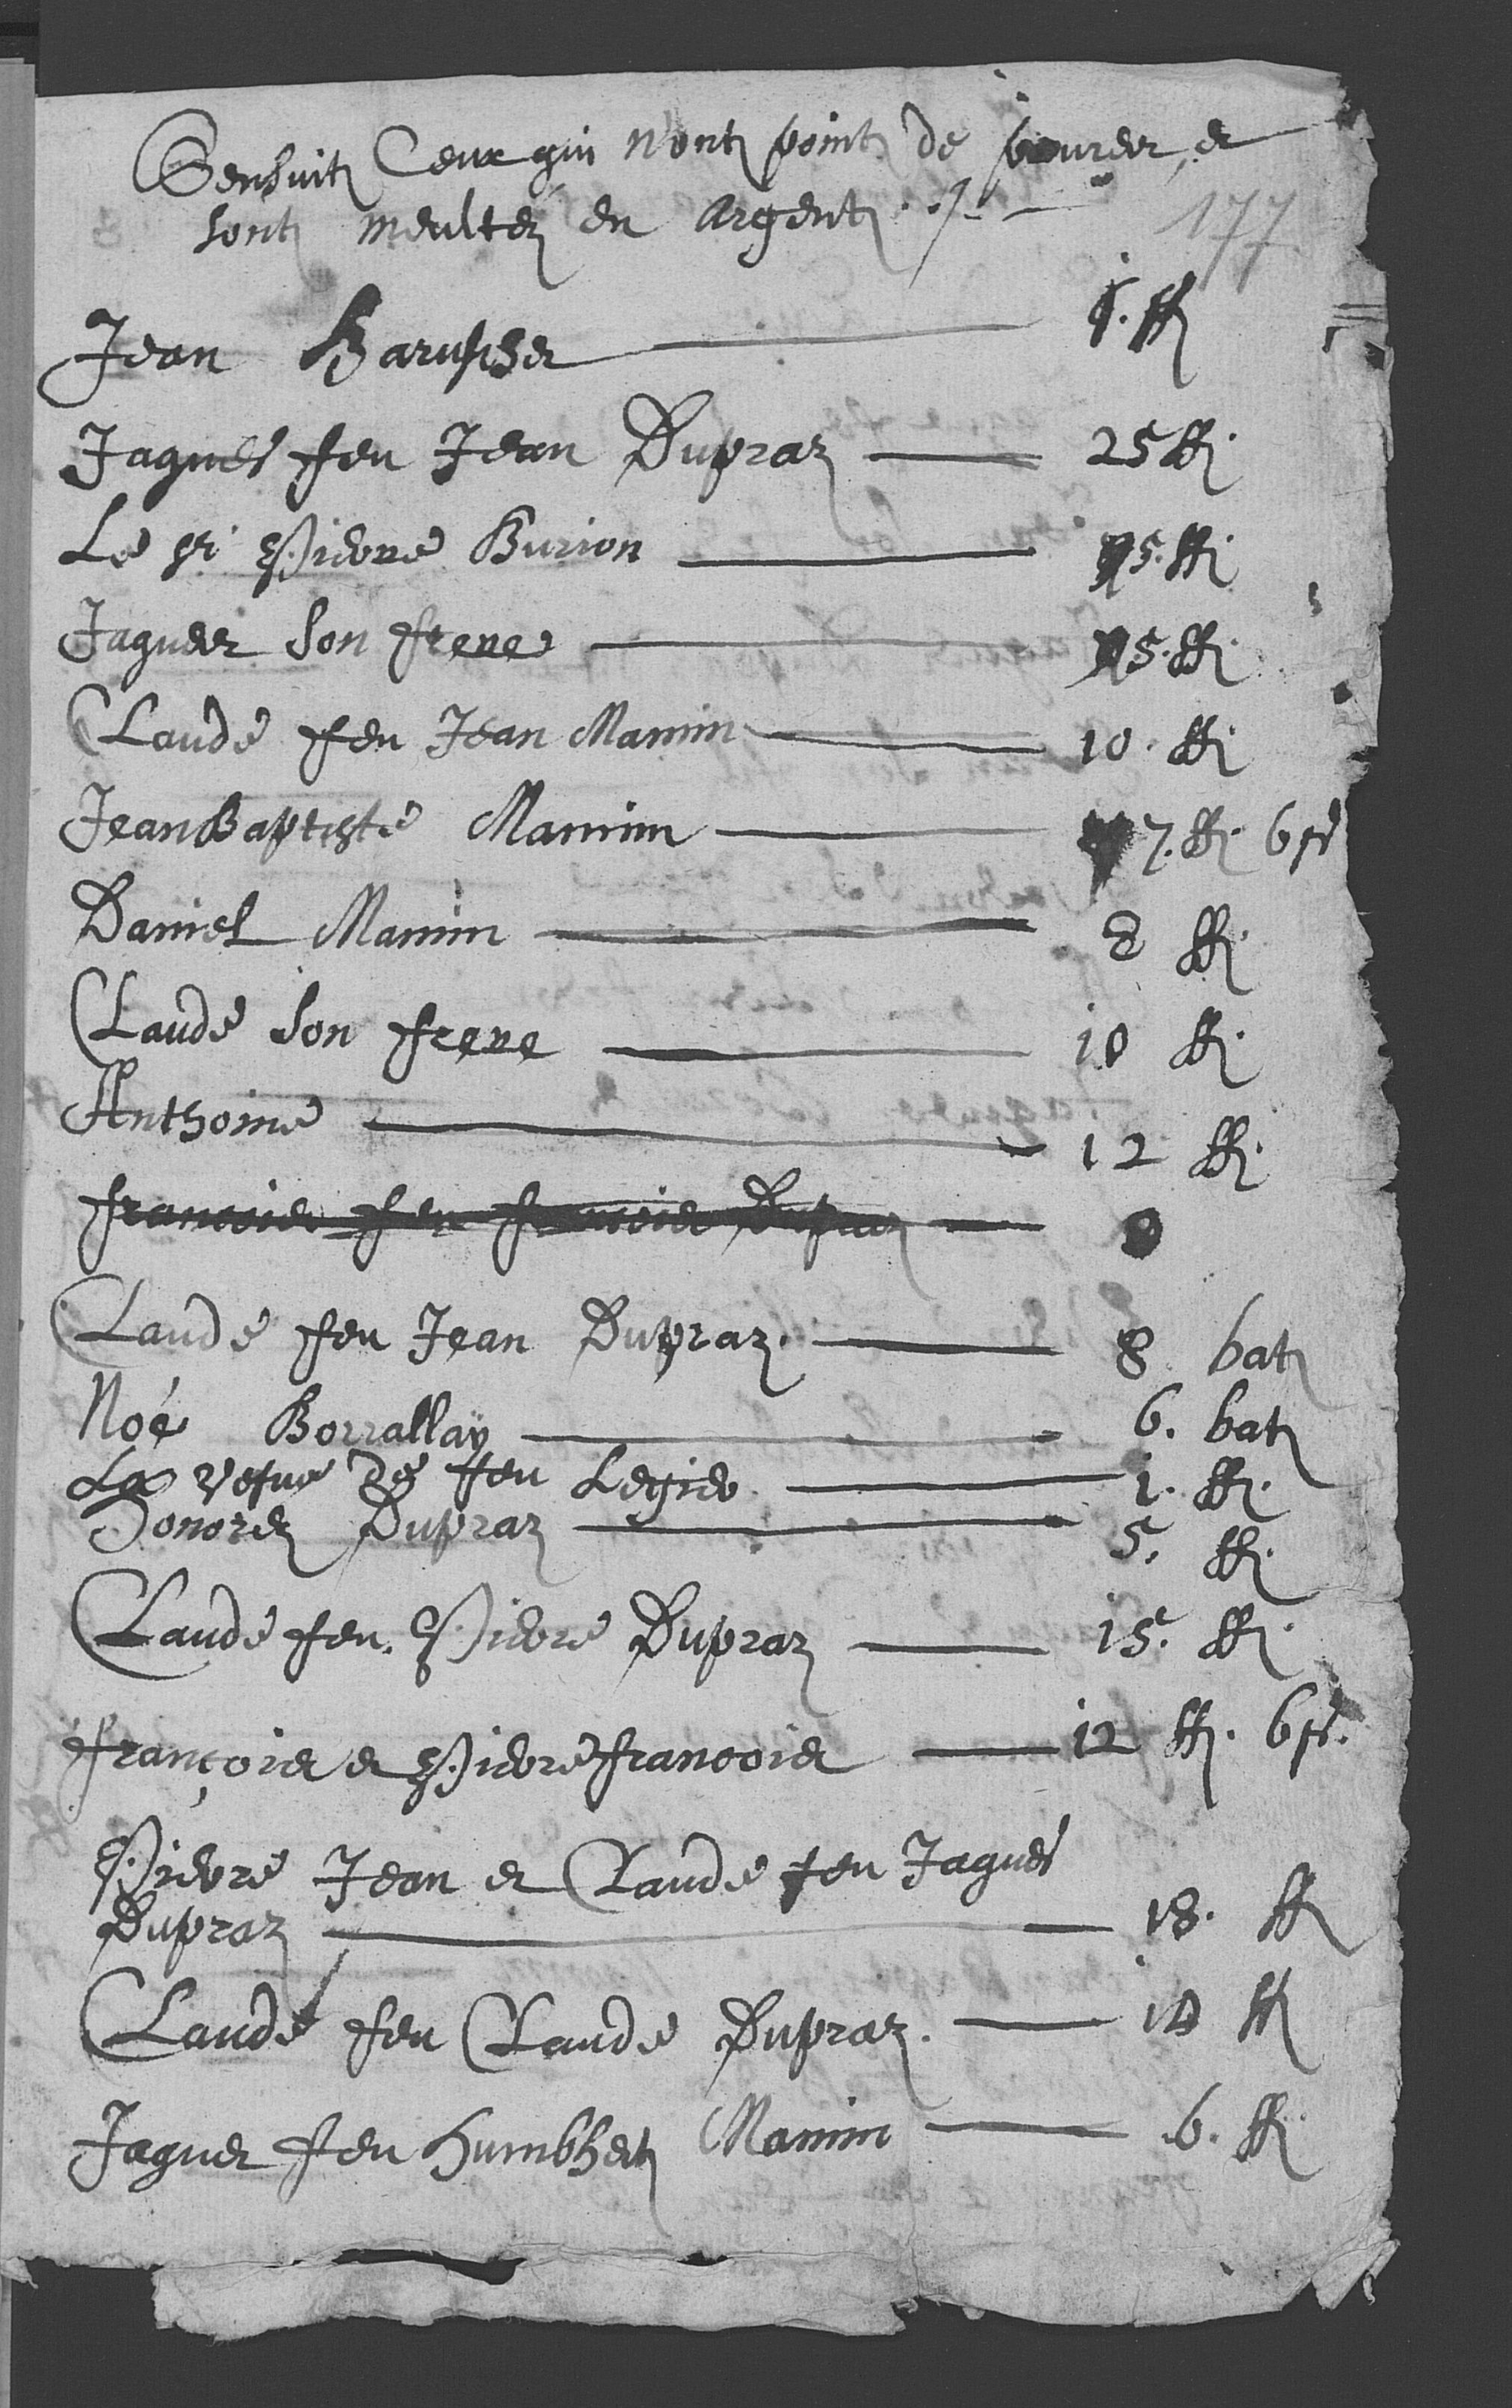 Sensuit Ceux qui n'ont point de et
sont meulter en argent ./.
177
Jean ff
Jaques ffeu Jean Dupraz 25 ff.
Le sr Pierre Burion 5. ff.
Jaques son frere 5. ff.
Claude ffeu Jean Mamin 10. ff.
Jean Baptiste Mamin 7. ff. 6 s
Daniel Mamin 8 ff.
Claude son frere 10 ff.
Anthoine 12 ff.
francois feu francois Dupraz
Claude ffeu Jean Dupraz. 8 batz
Noé Borrallay 6. batz
La vefue de ffeu Legier 1. ff.
Honorez Dupraz 5. ff.
Claude ffeu Pierre Dupraz 15. ff.
françois et Pierre francois 12 ff. 6 s.
Pierre Jean et Claude feu Jaques
Dupraz 18. ff
Claude ffeu Claude Dupraz. 10 ff
Jaques ffeu Humbhert Mamin 6. ff